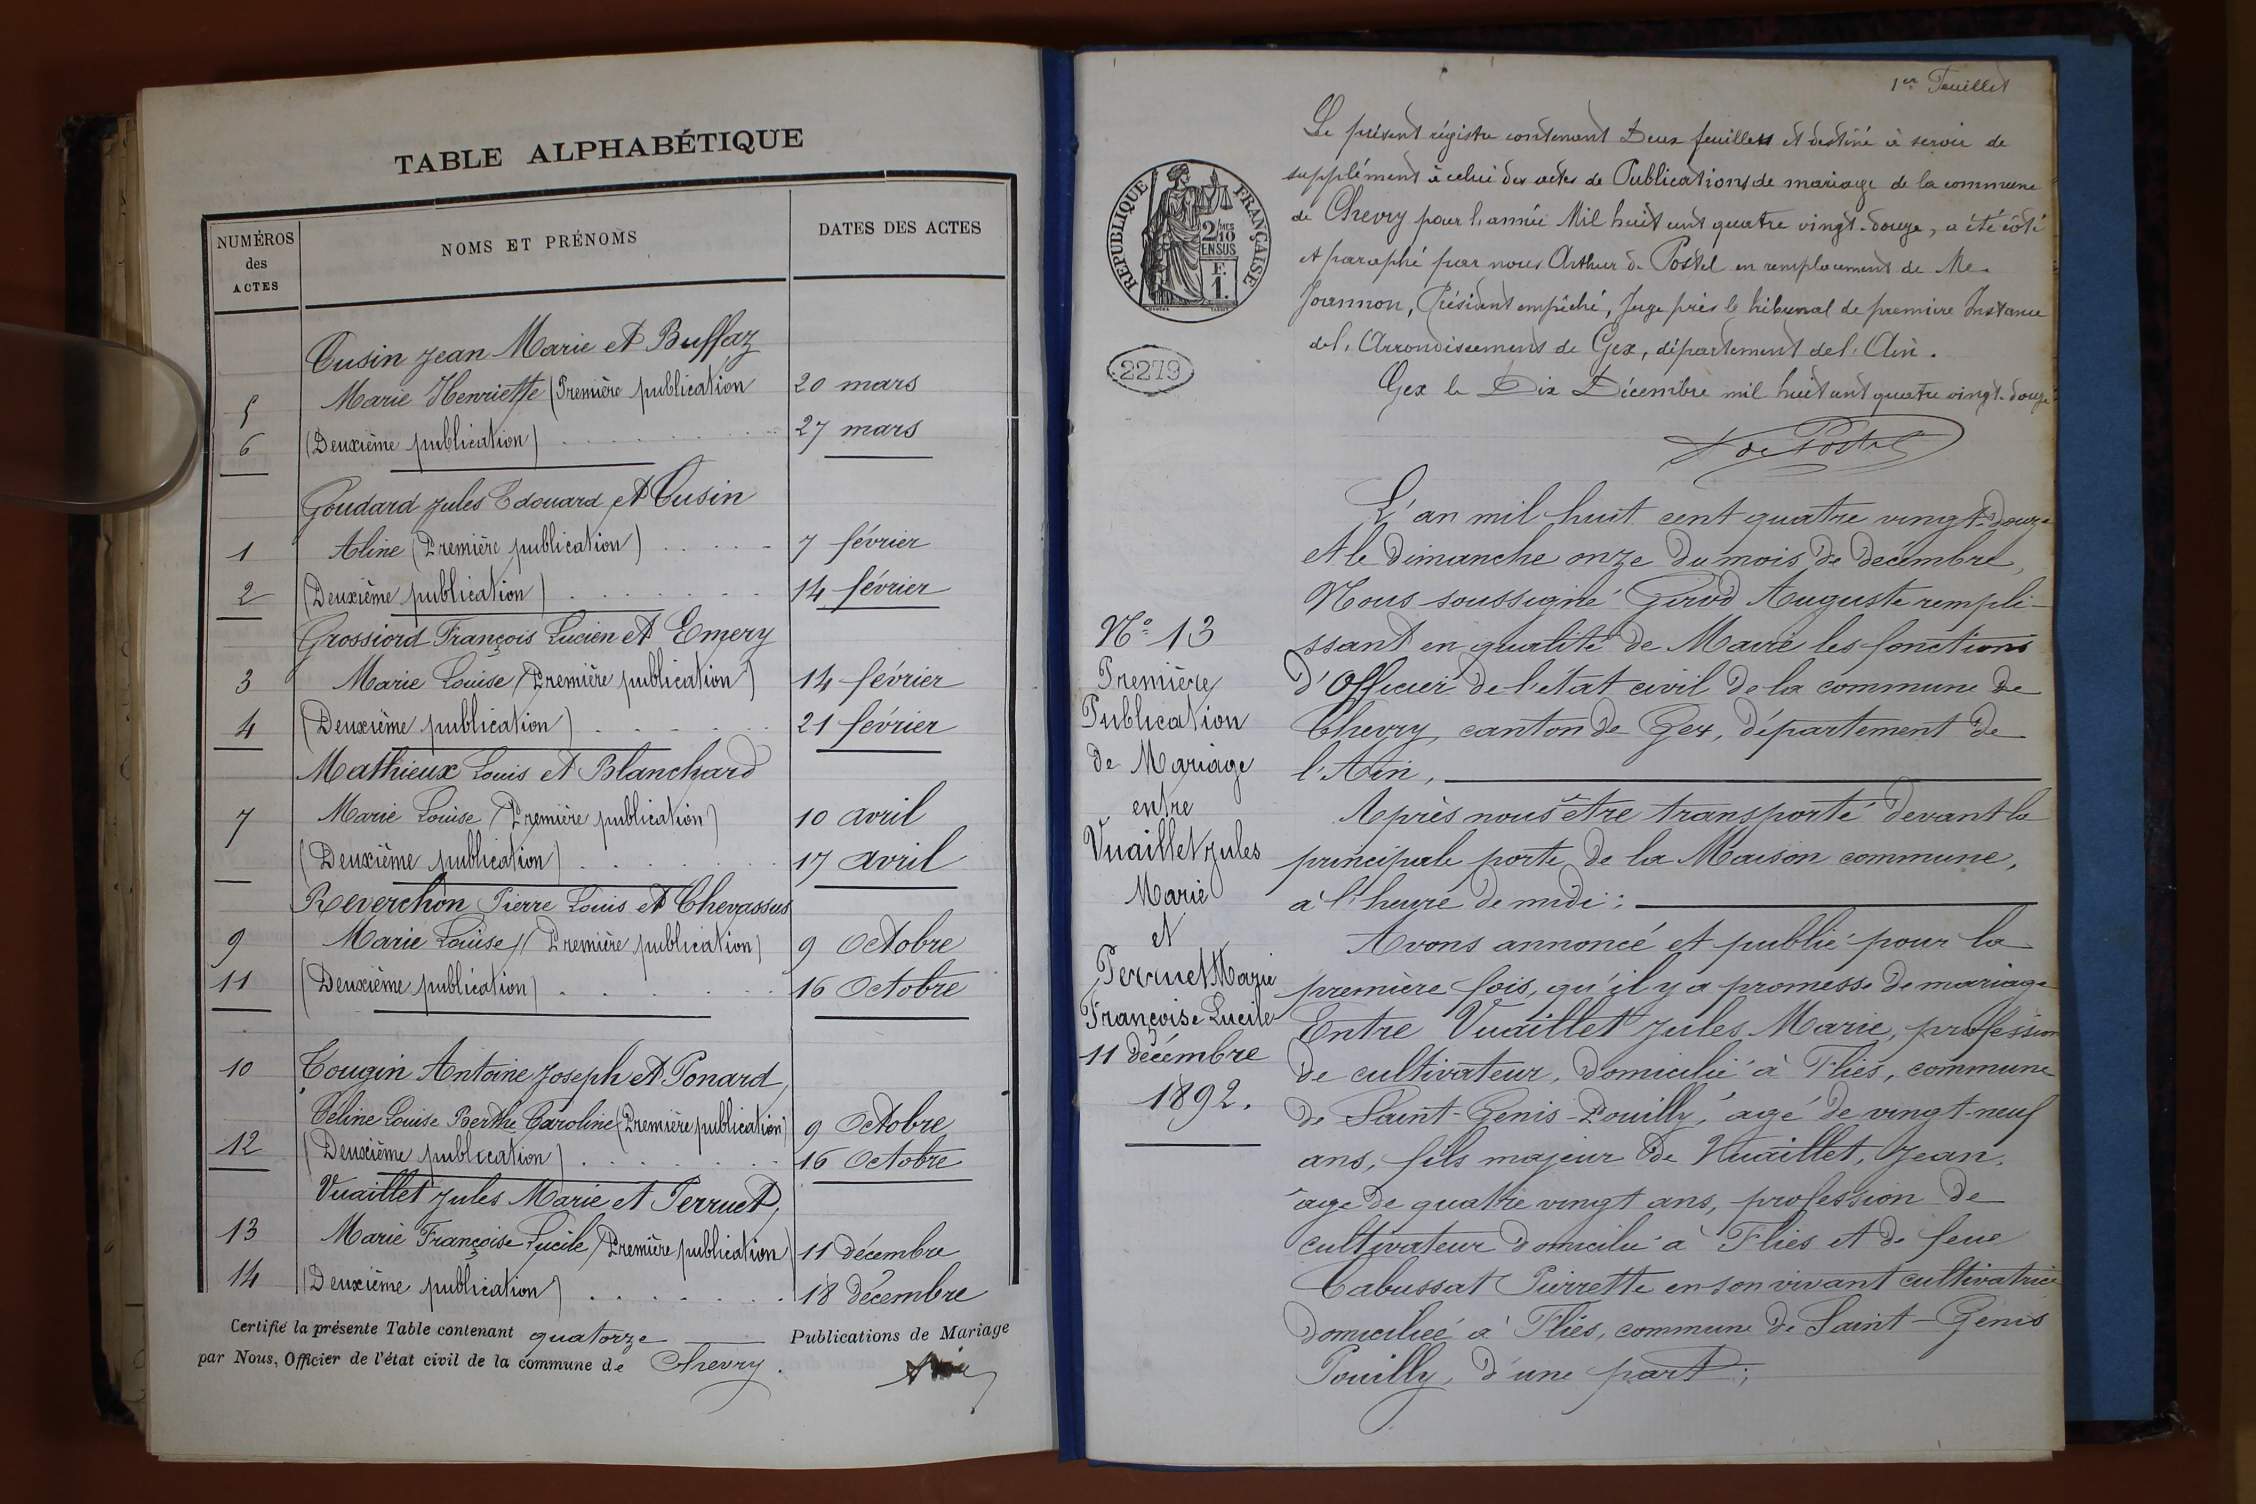 TABLE ALPHABÉTIQUE
NUMÉROS des ACTES
NOMS ET PRÉNOMS
DATES DES ACTES
Cusin Jean Marie et Buffaz
5 Marie Henriette (Première publication 20 mars
6 (Deuxième publication) 27 mars
Goudard Jules Edouard et Cusin
1 Aline (Première publication) 7 février
2 (Deuxième publication) 14 février
Grossiord François Lucien et Emery
3 Marie Louise (Première publication) 14 février
4 (Deuxième publication) 21 février
Mathieux Louis et Blanchard
7 Marie Louise (Première publication) 10 avril
(Deuxième publication) 17 avril
Reverchon Pierre Louis et Chevassus
9 Marie Louise (Première publication) 9 Octobre
11 (Deuxième publication) 16 Octobre
10 Tougin Antoine Joseph et Ponard,
Céline Louise Berthe Caroline (Première publication) 9 Octobre
12 (Deuxième publication) 16 Octobre
Vuaillet Jules Marie et Perruet,
13 Marie Françoise Lucile (Première publication) 11 décembre
14 (Deuxième publication) 18 décembre
Certifié la présente Table contenant quatorze Publications de Mariage
par Nous, Officier de l'état civil de la commune de Chevry.
1er Feuillet
Le présent régistre contenant Deux feuillets et destiné à servir de
supplément à celui des actes de Publications de mariage de la commune
de Chevry pour l'année Mil huit cent quatre vingt-douze, a été côté
et paraphé par nous Arthur de Postel en remplacement de Me
Joannon, Président empêché, Juge près le tribunal de première Instance
de l'Arrondissement de Gex, département de l'Ain.
Gex le Dix Décembre mil huit cent quatre vingt-douze
A de Postel
REPUBLIQUE FRANÇAISE
2/10 MES
EN SUS
F.
1.
2279
L'an mil huit cent quatre vingt-douze
et le dimanche onze du mois de décembre,
Nous soussigné Girod Auguste rempli-
ssant en qualité de Maire les fonctions
d'Officier de l'état civil de la commune de
Chevry, canton de Gex, département de
l'Ain,
Après nous être transporté devant la
principale porte de la Maison commune,
à l'heure de midi :
Avons annoncé et publié pour la
première fois, qu'il y a promesse de mariage
Entre Vuaillet Jules Marie, profession
de cultivateur, domicilié à Flies, commune
de Saint-Genis-Pouilly, âgé de vingt-neuf
ans, fils majeur de Vuaillet, Jean,
âge de quatre vingt ans, profession de
cultivateur domicilié à Flies et de feue
Cabussat Pierrette en son vivant cultivatrice
domiciliée à Flies, commune de Saint-Genis
Pouilly, d'une part ;
N° 13
Première
Publication
de Mariage
entre
Vuaillet Jules
Marie
et
Perruet Marie
Françoise Lucile
11 décembre
1892.